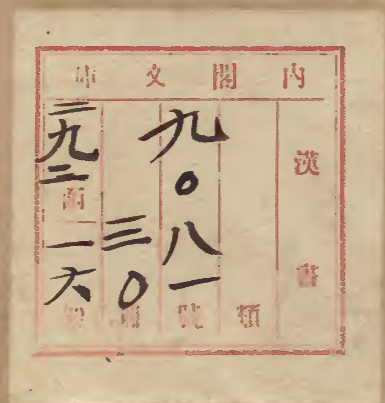 内閣文庫
漢書
類
九〇八一號
三〇冊
二九二函一六架